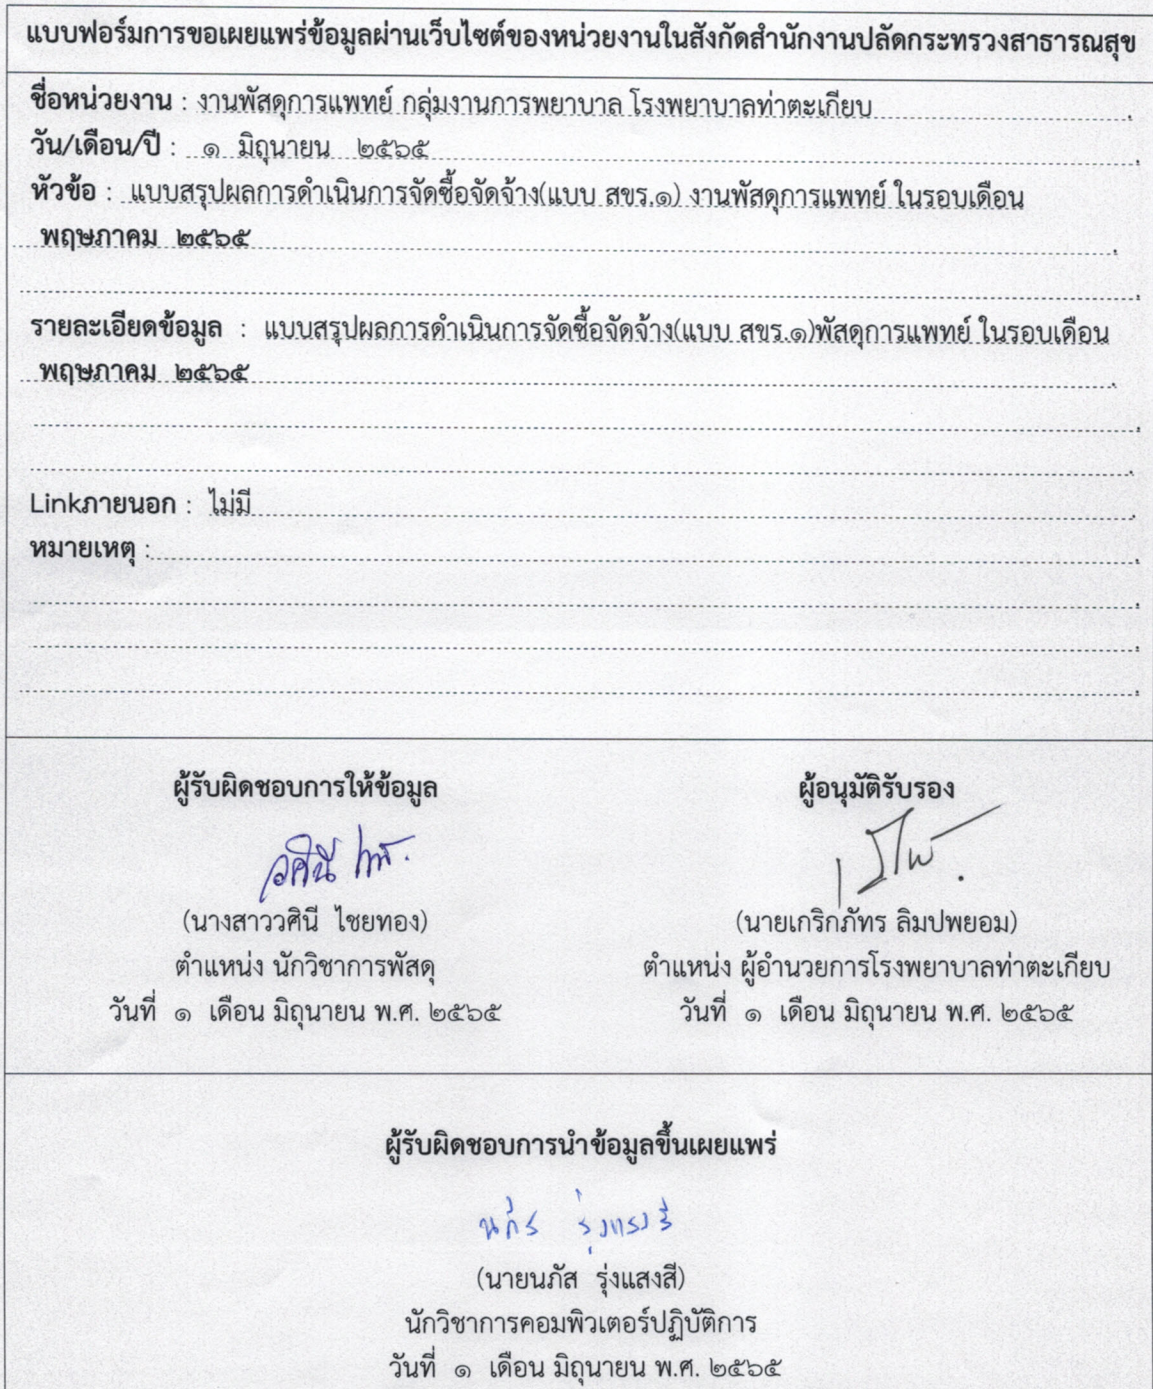 แบบฟอร์มการขอเผยแพร่ข้อมูลผ่านเว็บไซต์ของหน่วยงานในสังกัดสำนักงานปลัดกระทรวงสาธารณสุข
ชื่อหน่วยงาน : งานพัสดุการแพทย์ กลุ่มงานการพยาบาล โรงพยาบาลท่าตะเกียบ
วัน/เดือน/ปี : ๑ มิถุนายน ๒๕๖๕
หัวข้อ : แบบสรุปผลการดำเนินการจัดซื้อจัดจ้าง(แบบ สขร.๑) งานพัสดุการแพทย์ ในรอบเดือน
พฤษภาคม ๒๕๖๕
รายละเอียดข้อมูล : แบบสรุปผลการดำเนินการจัดซื้อจัดจ้าง(แบบ สขร.๑)พัสดุการแพทย์ ในรอบเดือน
พฤษภาคม ๒๕๖๕
Linkภายนอก : ไม่มี
หมายเหตุ :
ผู้รับผิดชอบการให้ข้อมูล
วศินี
(นางสาววศินี ไชยทอง)
ตำแหน่ง นักวิชาการพัสดุ
วันที่ ๑ เดือน มิถุนายน พ.ศ. ๒๕๖๕
ผู้อนุมัติรับรอง
(นายเกริกภัทร ลิมปพยอม)
ตำแหน่ง ผู้อำนวยการโรงพยาบาลท่าตะเกียบ
วันที่ ๑ เดือน มิถุนายน พ.ศ. ๒๕๖๕
ผู้รับผิดชอบการนำข้อมูลขึ้นเผยแพร่
นภัส รุ่งแสงสี
(นายนภัส รุ่งแสงสี)
นักวิชาการคอมพิวเตอร์ปฏิบัติการ
วันที่ ๑ เดือน มิถุนายน พ.ศ. ๒๕๖๕